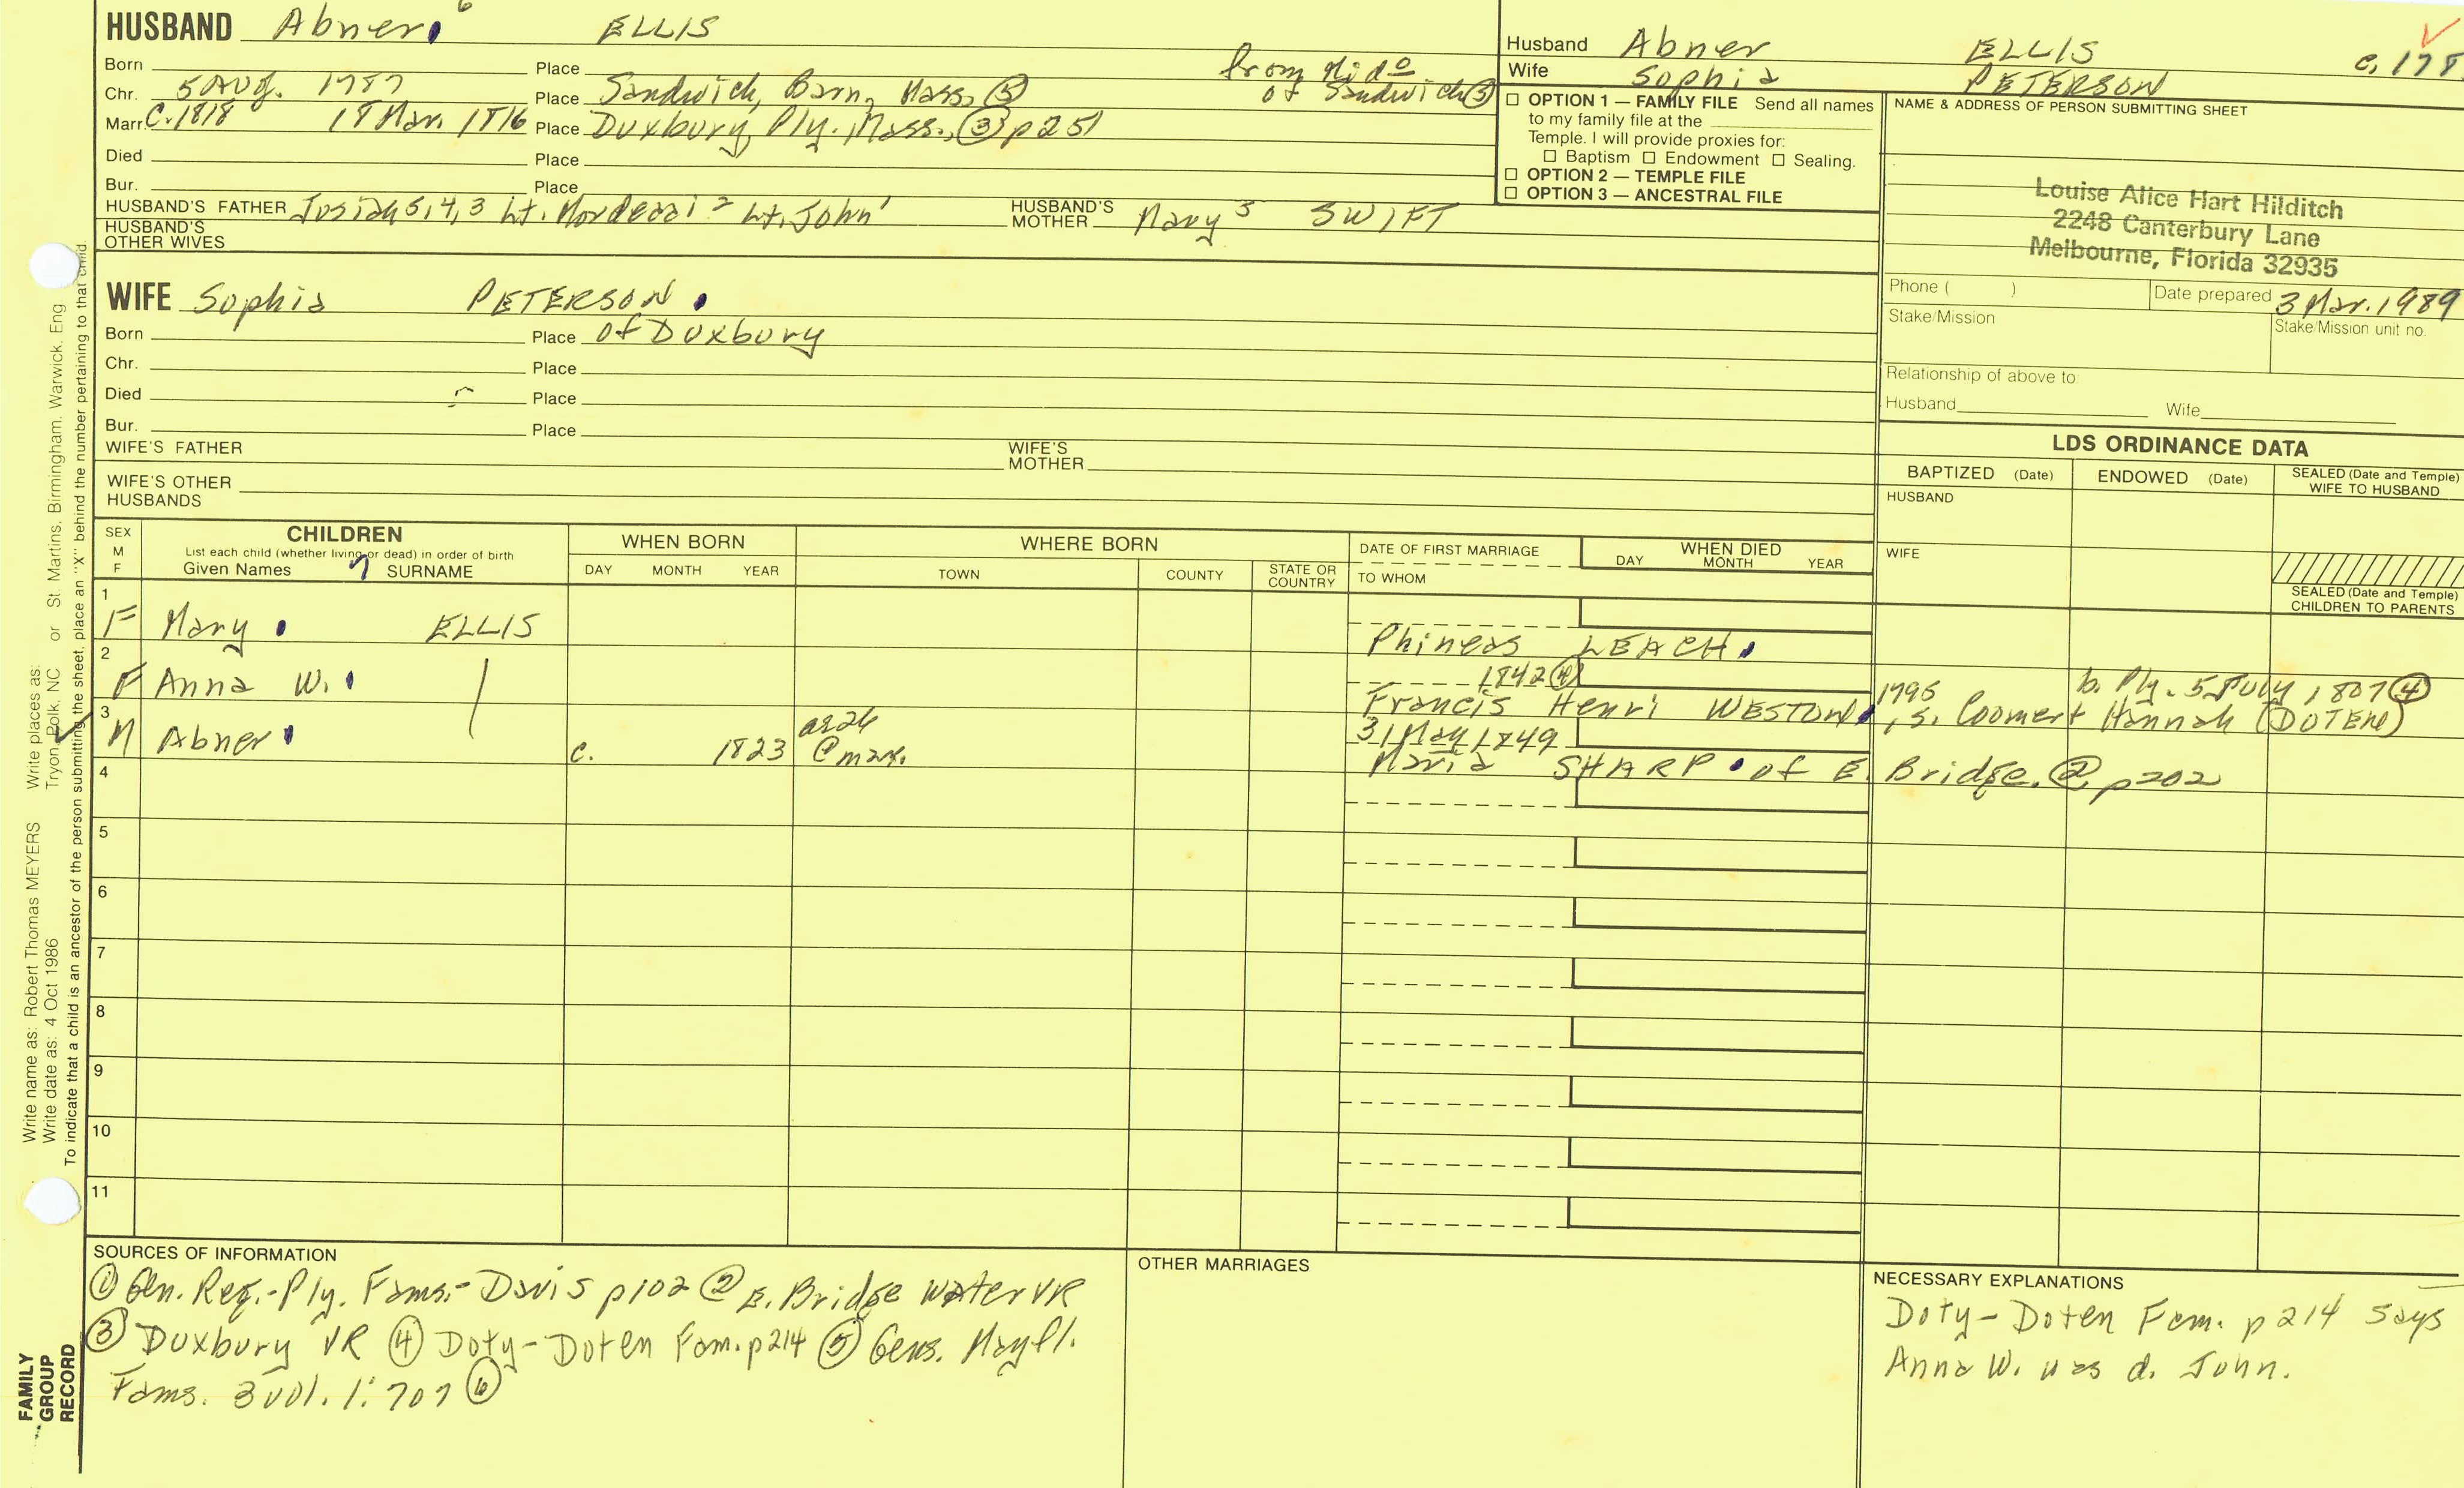 HUSBAND Abner 6 ELLIS
Born Place
Chr. 5 Aug. 1787 Place Sandwich, Barn, Mass. ⑤ from of Sandwich ③
Marr. C. 1818 18 Mar. 1816 Place Duxbury, Ply., Mass., ③ p251
Died Place
Bur. Place
HUSBAND'S FATHER Josiah 5,4,3 Lt. Mordecai 2 Lt. John 1 HUSBAND'S MOTHER Mary 5 SWIFT
HUSBAND'S OTHER WIVES
Husband Abner ELLIS
Wife Sophia PETERSON
☐ OPTION 1 — FAMILY FILE Send all names
to my family file at the
Temple. I will provide proxies for:
☐ Baptism ☐ Endowment ☐ Sealing.
☐ OPTION 2 — TEMPLE FILE
☐ OPTION 3 — ANCESTRAL FILE
NAME & ADDRESS OF PERSON SUBMITTING SHEET
Louise Alice Hart Hilditch
2248 Canterbury Lane
Melbourne, Florida 32935
Phone ( ) Date prepared 3 Mar. 1989
Stake/Mission Stake/Mission unit no.
Relationship of above to:
Husband Wife
WIFE Sophia PETERSON
Born Place of Duxbury
Chr. Place
Died Place
Bur. Place
WIFE'S FATHER WIFE'S MOTHER
WIFE'S OTHER HUSBANDS
LDS ORDINANCE DATA
BAPTIZED (Date) ENDOWED (Date) SEALED (Date and Temple) WIFE TO HUSBAND
HUSBAND
WIFE
SEALED (Date and Temple) CHILDREN TO PARENTS
SEX M F
CHILDREN
List each child (whether living or dead) in order of birth
Given Names 7 SURNAME
WHEN BORN
DAY MONTH YEAR
WHERE BORN
TOWN COUNTY STATE OR COUNTRY
DATE OF FIRST MARRIAGE
TO WHOM
WHEN DIED
DAY MONTH YEAR
1 F Mary ELLIS Phineas LEACH
2 F Anna W. 1842 ④ Francis Henri WESTON, 1795 b. Ply. 5 July 1807 ④ , s. Coomer & Hannah (DOTEN)
3 M Abner c. 1823 ae 26 @ mar. 31 May 1849 Maria SHARP of E. Bridge. ② p202
4
5
6
7
8
9
10
11
SOURCES OF INFORMATION
① Gen. Reg.-Ply. Fams.- Davis p102 ② E. Bridgewater VR
③ Duxbury VR ④ Doty-Doten Fam. p214 ⑤ Gens. Mayfl.
Fams. 3 vol. 1:707 ⑥
OTHER MARRIAGES
NECESSARY EXPLANATIONS
Doty-Doten Fam. p214 says
Anna W. was d. John.
Write name as: Robert Thomas MEYERS Write places as: Tryon, Polk, NC or St. Martins, Birmingham, Warwick, Eng
Write date as: 4 Oct 1986
To indicate that a child is an ancestor of the person submitting the sheet, place an "X" behind the number pertaining to that child
FAMILY
GROUP
RECORD